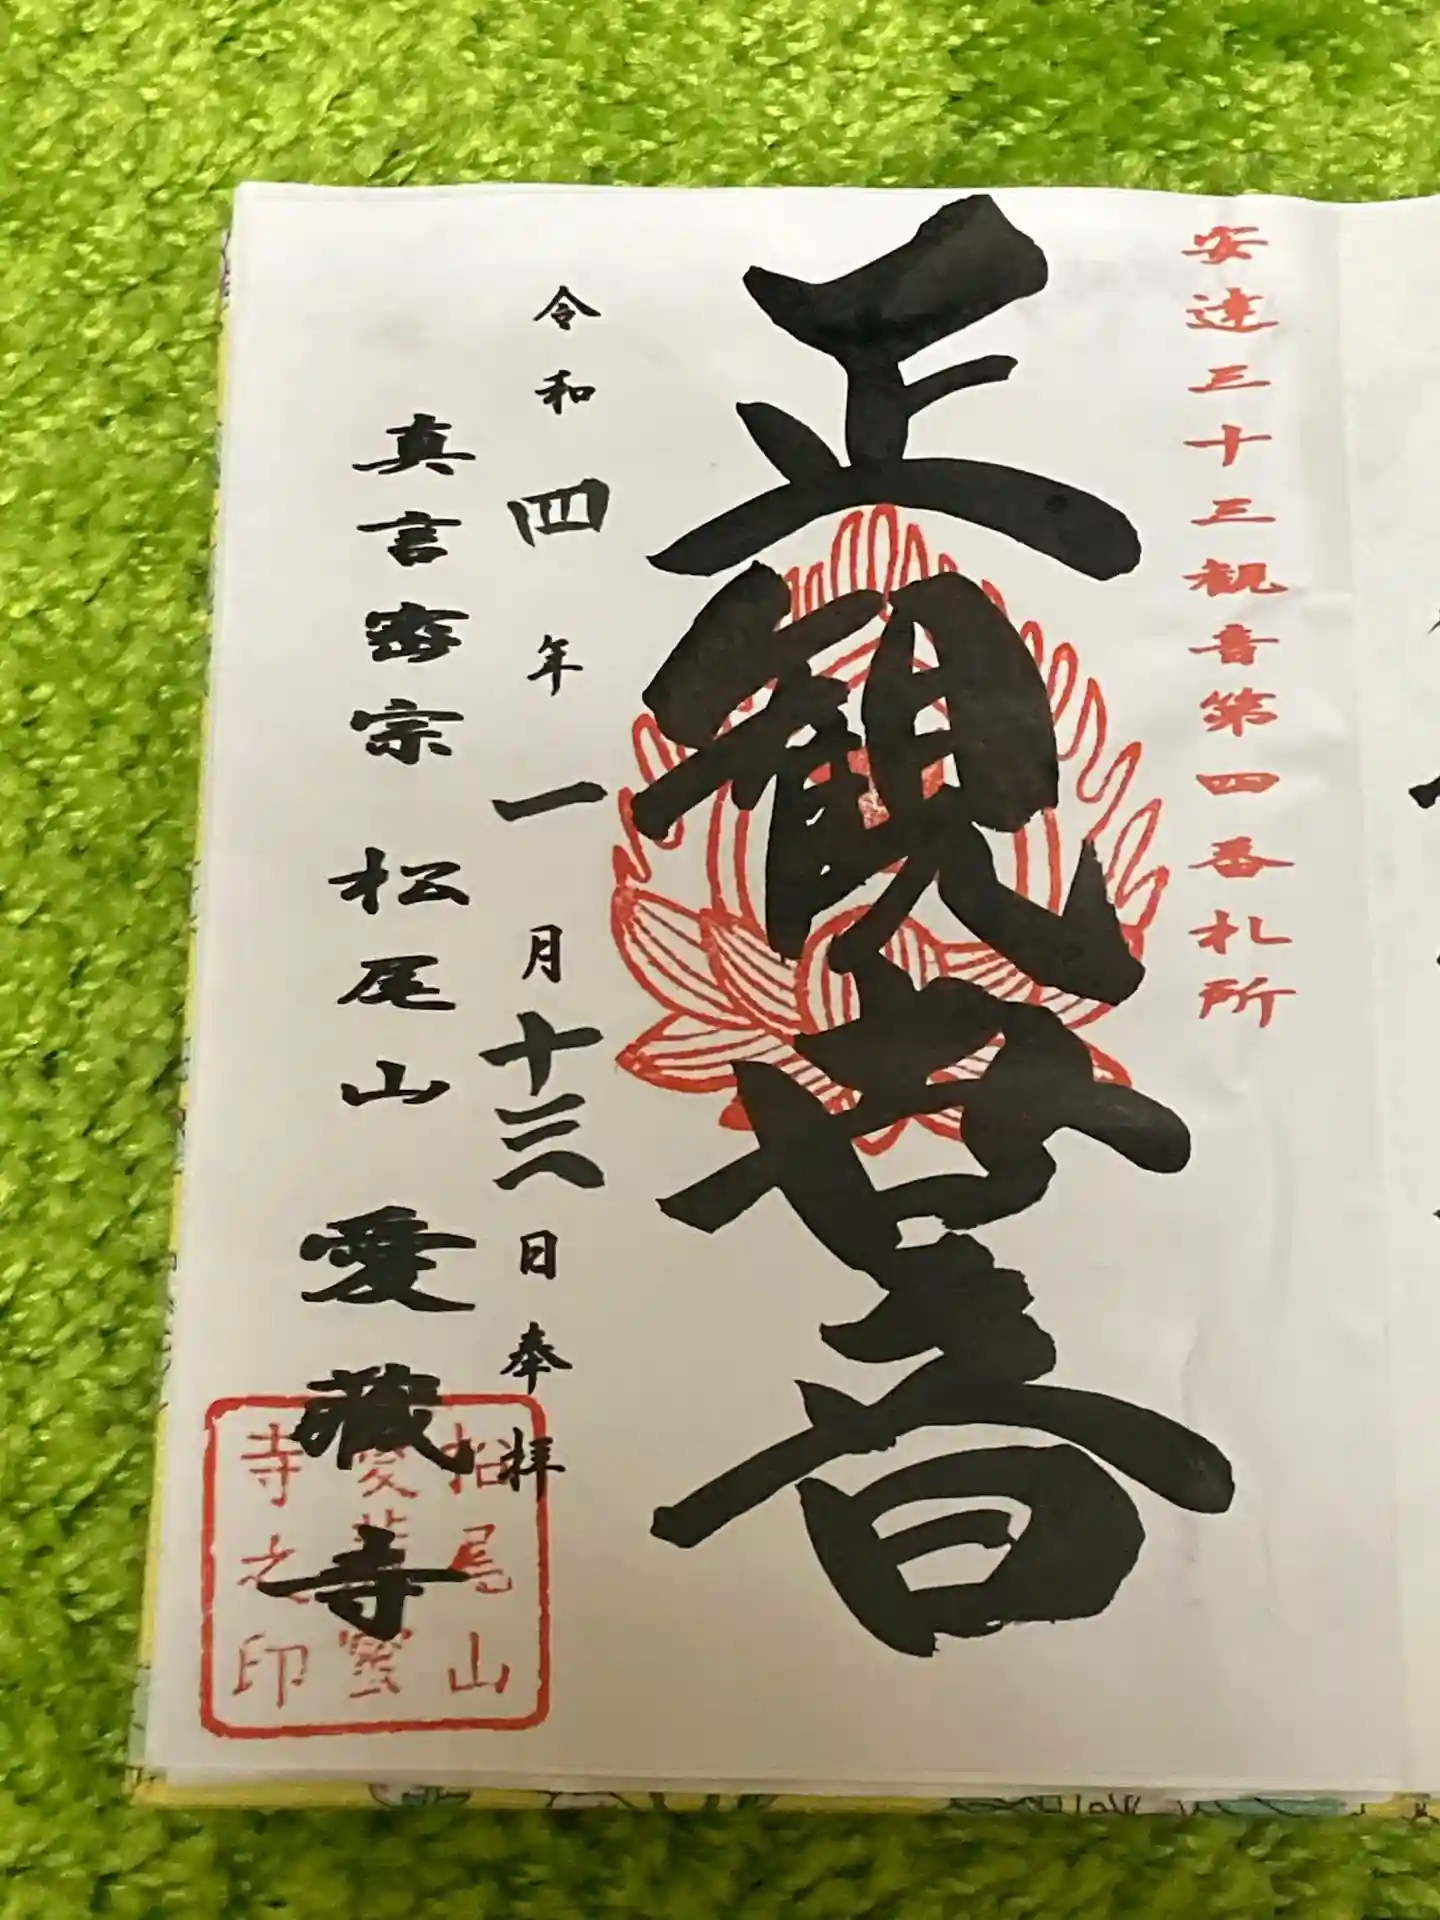 安達三十三観音第四番札所
正観世音
令和四年一月十三日奉拝
真言密宗 松尾山 愛藏寺
松尾山
寺之印